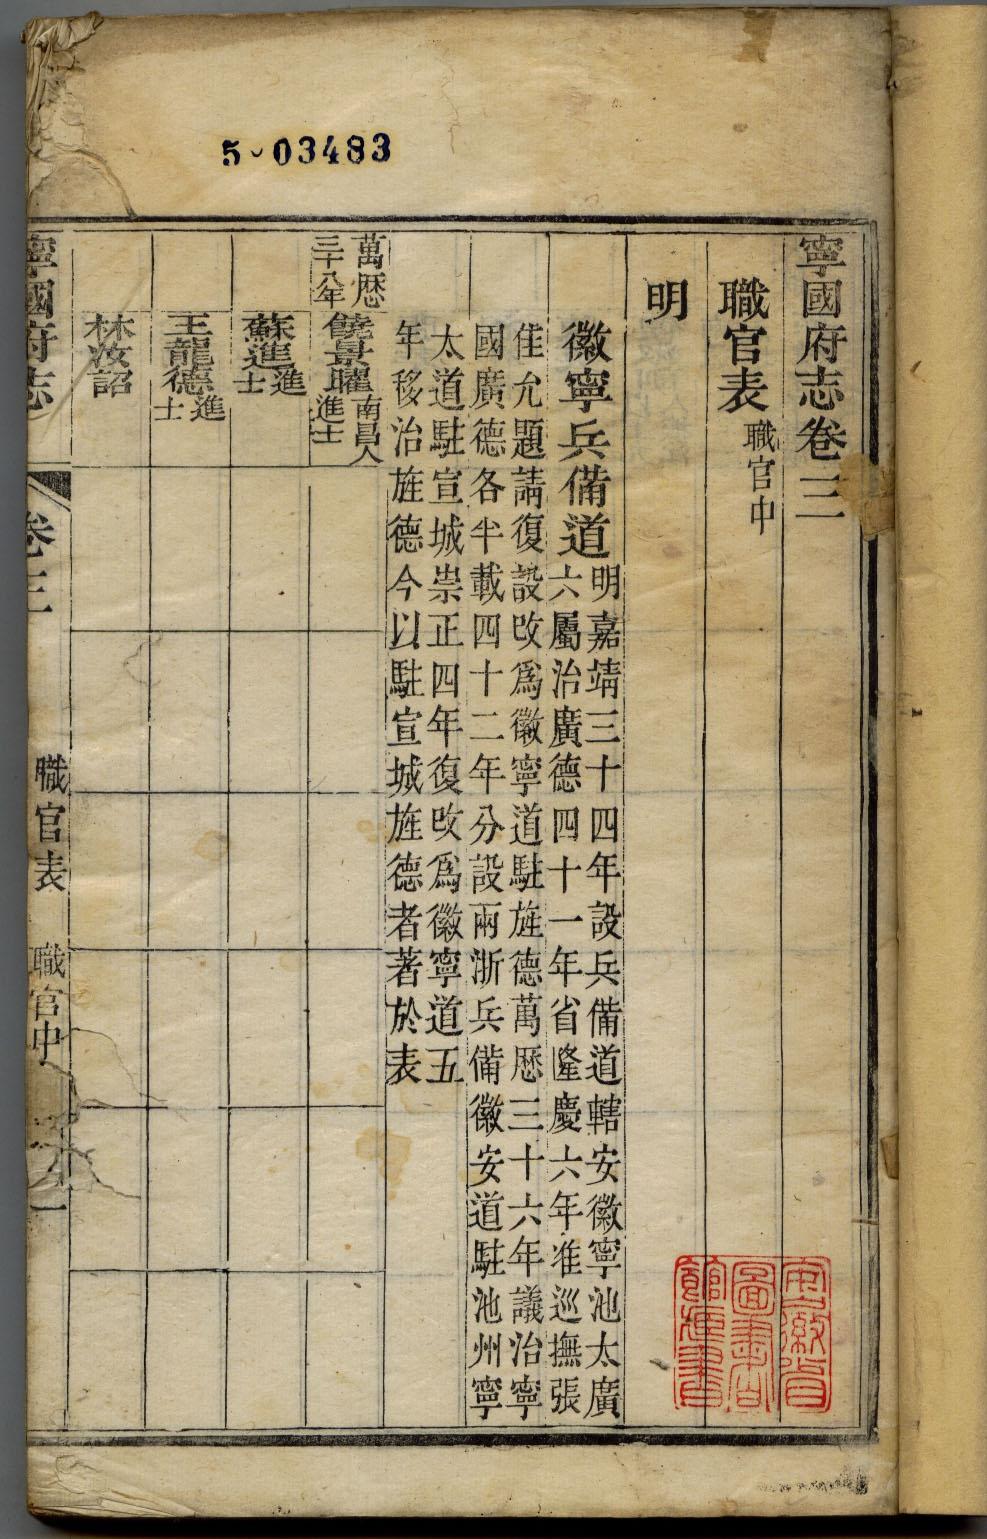 5-03483
寧國府志卷三
職官表 職官中
明
徽寧兵備道
明嘉靖三十四年設兵備道轄安徽寧池太廣
六屬治廣德四十一年省隆慶六年准巡撫張
佳允題請復設改爲徽寧道駐旌德萬歷三十六年議治寧
國廣德各半載四十二年分設兩浙兵備徽安道駐池州寧
太道駐宣城崇正四年復改爲徽寧道五
年移治旌德今以駐宣城旌德者著於表
萬歷
三十八年
饒景曜 南昌人
進士
蘇進 進
士
王龍德 進
士
林汝詔
寧國府志 卷三 職官表 職官中 一
安徽省
圖書館
館藏書